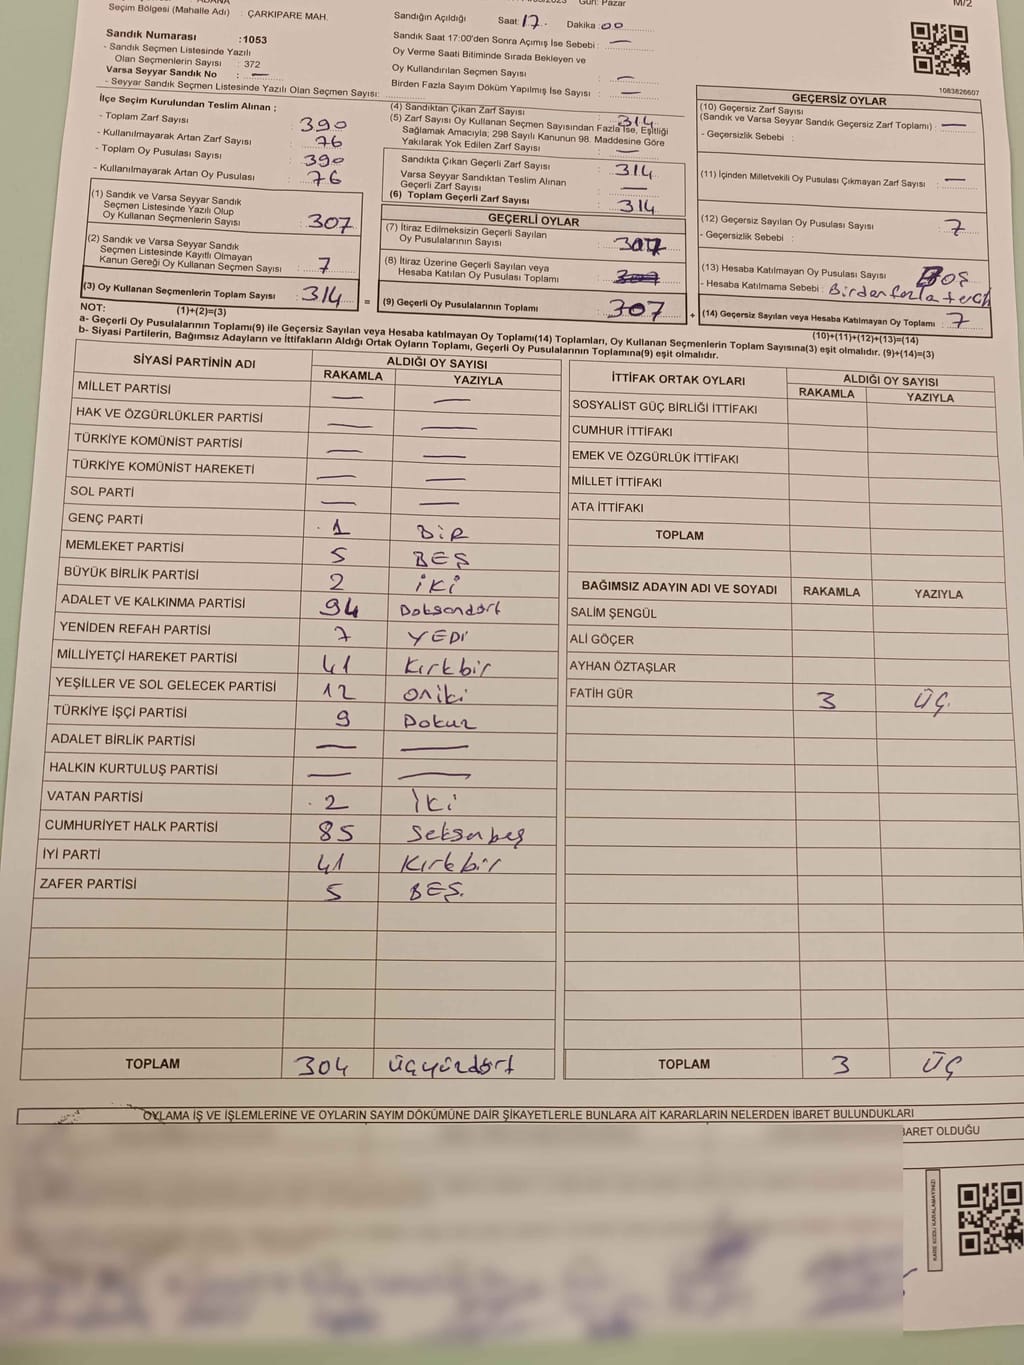 ADANA
Seçim Bölgesi (Mahalle Adı) : ÇARKIPARE MAH.
Sandık Numarası :1053
- Sandık Seçmen Listesinde Yazılı
Olan Seçmenlerin Sayısı : 372
Varsa Seyyar Sandık No : —
- Seyyar Sandık Seçmen Listesinde Yazılı Olan Seçmen Sayısı:
İlçe Seçim Kurulundan Teslim Alınan ;
- Toplam Zarf Sayısı : 390
- Kullanılmayarak Artan Zarf Sayısı : 76
- Toplam Oy Pusulası Sayısı : 390
- Kullanılmayarak Artan Oy Pusulası : 76
(1) Sandık ve Varsa Seyyar Sandık
Seçmen Listesinde Yazılı Olup
Oy Kullanan Seçmenlerin Sayısı : 307
(2) Sandık ve Varsa Seyyar Sandık
Seçmen Listesinde Kayıtlı Olmayan
Kanun Gereği Oy Kullanan Seçmen Sayısı : 7
(3) Oy Kullanan Seçmenlerin Toplam Sayısı : 314 =
Gün: Pazar
Sandığın Açıldığı Saat: 17. Dakika : 00
Sandık Saat 17:00'den Sonra Açımış İse Sebebi : —
Oy Verme Saati Bitiminde Sırada Bekleyen ve
Oy Kullandırılan Seçmen Sayısı : —
Birden Fazla Sayım Döküm Yapılmış İse Sayısı : —
(4) Sandıktan Çıkan Zarf Sayısı : 314
(5) Zarf Sayısı Oy Kullanan Seçmen Sayısından Fazla İse, Eşitliği
Sağlamak Amacıyla; 298 Sayılı Kanunun 98. Maddesine Göre
Yakılarak Yok Edilen Zarf Sayısı : —
Sandıkta Çıkan Geçerli Zarf Sayısı : 314
Varsa Seyyar Sandıktan Teslim Alınan
Geçerli Zarf Sayısı : —
(6) Toplam Geçerli Zarf Sayısı : 314
GEÇERLİ OYLAR
(7) İtiraz Edilmeksizin Geçerli Sayılan
Oy Pusulalarının Sayısı : 307
(8) İtiraz Üzerine Geçerli Sayılan veya
Hesaba Katılan Oy Pusulası Toplamı :
(9) Geçerli Oy Pusulalarının Toplamı : 307 +
M/2
1083826607
GEÇERSİZ OYLAR
(10) Geçersiz Zarf Sayısı
(Sandık ve Varsa Seyyar Sandık Geçersiz Zarf Toplamı) : —
- Geçersizlik Sebebi :
(11) İçinden Milletvekili Oy Pusulası Çıkmayan Zarf Sayısı : —
(12) Geçersiz Sayılan Oy Pusulası Sayısı : 7
- Geçersizlik Sebebi :
(13) Hesaba Katılmayan Oy Pusulası Sayısı : Boş
- Hesaba Katılmama Sebebi : Birden fazla tercih
(14) Geçersiz Sayılan veya Hesaba Katılmayan Oy Toplamı : 7
NOT: (1)+(2)=(3) (10)+(11)+(12)+(13)=(14)
a- Geçerli Oy Pusulalarının Toplamı(9) ile Geçersiz Sayılan veya Hesaba katılmayan Oy Toplamı(14) Toplamları, Oy Kullanan Seçmenlerin Toplam Sayısına(3) eşit olmalıdır. (9)+(14)=(3)
b- Siyasi Partilerin, Bağımsız Adayların ve İttifakların Aldığı Ortak Oyların Toplamı, Geçerli Oy Pusulalarının Toplamına(9) eşit olmalıdır.
SİYASİ PARTİNİN ADI ALDIĞI OY SAYISI
RAKAMLA YAZIYLA
MİLLET PARTİSİ — —
HAK VE ÖZGÜRLÜKLER PARTİSİ — —
TÜRKİYE KOMÜNİST PARTİSİ — —
TÜRKİYE KOMÜNİST HAREKETİ — —
SOL PARTİ — —
GENÇ PARTİ 1 BİR
MEMLEKET PARTİSİ 5 BEŞ
BÜYÜK BİRLİK PARTİSİ 2 İKİ
ADALET VE KALKINMA PARTİSİ 94 Doksandört
YENİDEN REFAH PARTİSİ 7 YEDİ
MİLLİYETÇİ HAREKET PARTİSİ 41 Kırkbir
YEŞİLLER VE SOL GELECEK PARTİSİ 12 oniki
TÜRKİYE İŞÇİ PARTİSİ 9 Dokuz
ADALET BİRLİK PARTİSİ — —
HALKIN KURTULUŞ PARTİSİ — —
VATAN PARTİSİ 2 İki
CUMHURİYET HALK PARTİSİ 85 Seksenbeş
İYİ PARTİ 41 Kırkbir
ZAFER PARTİSİ 5 BEŞ.
TOPLAM 304 üçyüzdört
İTTİFAK ORTAK OYLARI ALDIĞI OY SAYISI
RAKAMLA YAZIYLA
SOSYALİST GÜÇ BİRLİĞİ İTTİFAKI
CUMHUR İTTİFAKI
EMEK VE ÖZGÜRLÜK İTTİFAKI
MİLLET İTTİFAKI
ATA İTTİFAKI
TOPLAM
BAĞIMSIZ ADAYIN ADI VE SOYADI RAKAMLA YAZIYLA
SALİM ŞENGÜL
ALİ GÖÇER
AYHAN ÖZTAŞLAR
FATİH GÜR 3 ÜÇ.
TOPLAM 3 ÜÇ
OYLAMA İŞ VE İŞLEMLERİNE VE OYLARIN SAYIM DÖKÜMÜNE DAİR ŞİKAYETLERLE BUNLARA AİT KARARLARIN NELERDEN İBARET BULUNDUKLARI
BARET OLDUĞU
KARE KODU KARALAMAYINIZ!